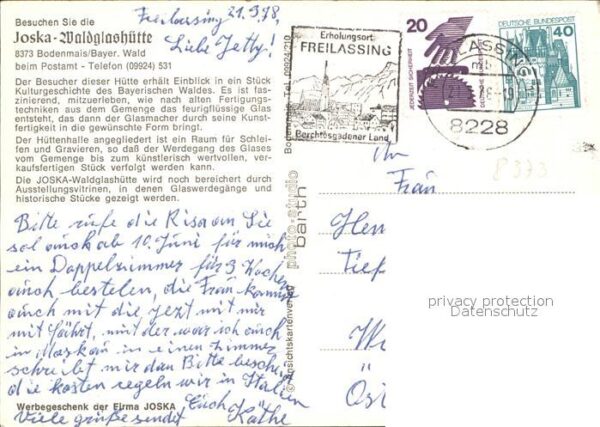 Besuchen Sie die
Joska-Waldglashütte
8373 Bodenmais/Bayer. Wald
beim Postamt - Telefon (09924) 531
Der Besucher dieser Hütte erhält Einblick in ein Stück
Kulturgeschichte des Bayerischen Waldes. Es ist fas-
zinierend, mitzuerleben, wie nach alten Fertigungs-
techniken aus dem Gemenge das feurigflüssige Glas
entsteht, das dann der Glasmacher durch seine Kunst-
fertigkeit in die gewünschte Form bringt.
Der Hüttenhalle angegliedert ist ein Raum für Schlei-
fen und Gravieren, so daß der Werdegang des Glases
vom Gemenge bis zum künstlerisch wertvollen, ver-
kaufsfertigen Stück verfolgt werden kann.
Die JOSKA-Waldglashütte wird noch bereichert durch
Ausstellungsvitrinen, in denen Glaswerdegänge und
historische Stücke gezeigt werden.
Freilassing 21.3.78,
Liebe Jetty!
Bitte rufe die an Sie
sol auch ab 10. Juni für mich
ein Doppelzimmer für 3 Wochen
auch bestelen, die Frau
auch mit die jezt mit mir
mit fährt, mit der war ich auch
in in einen Zimmer
schreibt mir dan Bitte bescheid
die kosten regeln wir in Italien
Viele grüße sendet Euch Käthe
Werbegeschenk der Firma JOSKA
Erholungsort
FREILASSING
Berchtesgadener Land
20
JEDERZEIT SICHERHEIT
DEUTSCHE BUNDESPOST
40
LASSING
mb
8228
Bodenmais Tel. 09924/210
photo-studio
barth
© Ansichtskartenverlag
8373
Frau
Tief
Öst
privacy protection
Datenschutz